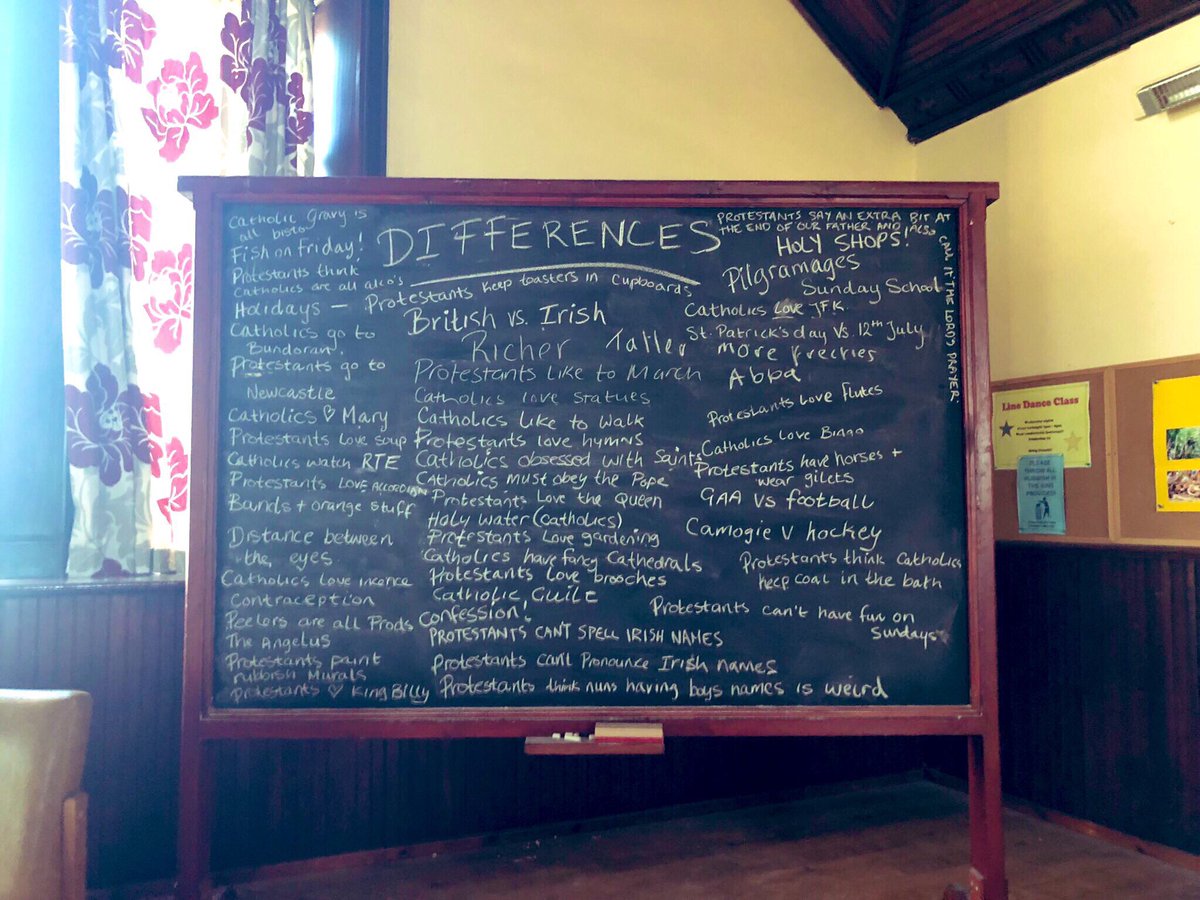 DIFFERENCES
Catholic Gravy is
all bisto
Fish on Friday!
Protestants think
Catholics are all alco's
Holidays —
Catholics go to
Bundoran.
Protestants go to
Newcastle
Catholics ♡ Mary
Protestants love soup
Catholics watch RTE
Protestants LOVE ACCORDIAN
Bands + orange stuff
Distance between
the eyes.
Catholics love incence
Contraception
Peelers are all Prods
The Angelus
Protestants paint
rubbish Murals
Protestants ♡ King Billy
Protestants keep toasters in cupboards
British vs. Irish
Richer Taller
Protestants like to March
Catholics love statues
Catholics like to walk
Protestants love hymns
Catholics obsessed with saints
Catholics must obey the Pope
Protestants Love the Queen
Holy water (catholics)
Protestants love gardening
Catholics have fancy Cathedrals
Protestants love brooches
Catholic Guilt
Confession!
PROTESTANTS CAN'T SPELL IRISH NAMES
Protestants can't Pronounce Irish names
Protestants think nuns having boys names is weird
PROTESTANTS SAY AN EXTRA BIT AT
THE END OF OUR FATHER AND ALSO
CALL IT THE LORD'S PRAYER
HOLY SHOPS!
Pilgramages
Sunday School
Catholics Love JFK.
St. Patrick's day Vs. 12th July
more freckles
Abba
Protestants love flutes
Catholics Love Bingo
Protestants have horses +
wear gilets
GAA Vs football
Camogie V hockey
Protestants think Catholics
keep coal in the bath
Protestants can't have fun on
Sundays
Line Dance Class
PLEASE
THROW ALL
RUBBISH IN
THE BINS
PROVIDED